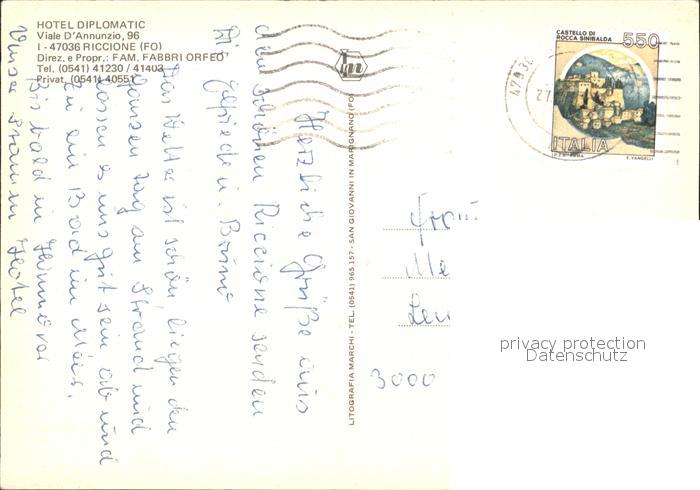 HOTEL DIPLOMATIC
Viale D'Annunzio, 96
I - 47036 RICCIONE (FO)
Direz. e Propr.: FAM. FABBRI ORFEO
Tel. (0541) 41230 / 41403
Privat. (0541) 40551
Herzliche Grüße aus
dem schönen Riccione senden
Dir
Elfriede u. Bruno
Das Wetter ist schön liegen den
ganzen Tag am Strand und
lassen es uns gut sein ab und
zu ein Bad im
Bis bald in Hannover
Unser Hotel
LITOGRAFIA MARCHI - TEL. (0541) 965 157 - SAN GIOVANNI IN MARIGNANO (FO)
CASTELLO DI
ROCCA SINIBALDA
550
ITALIA
I.P.Z.S. ROMA
E. VANGELLI
3000
privacy protection
Datenschutz